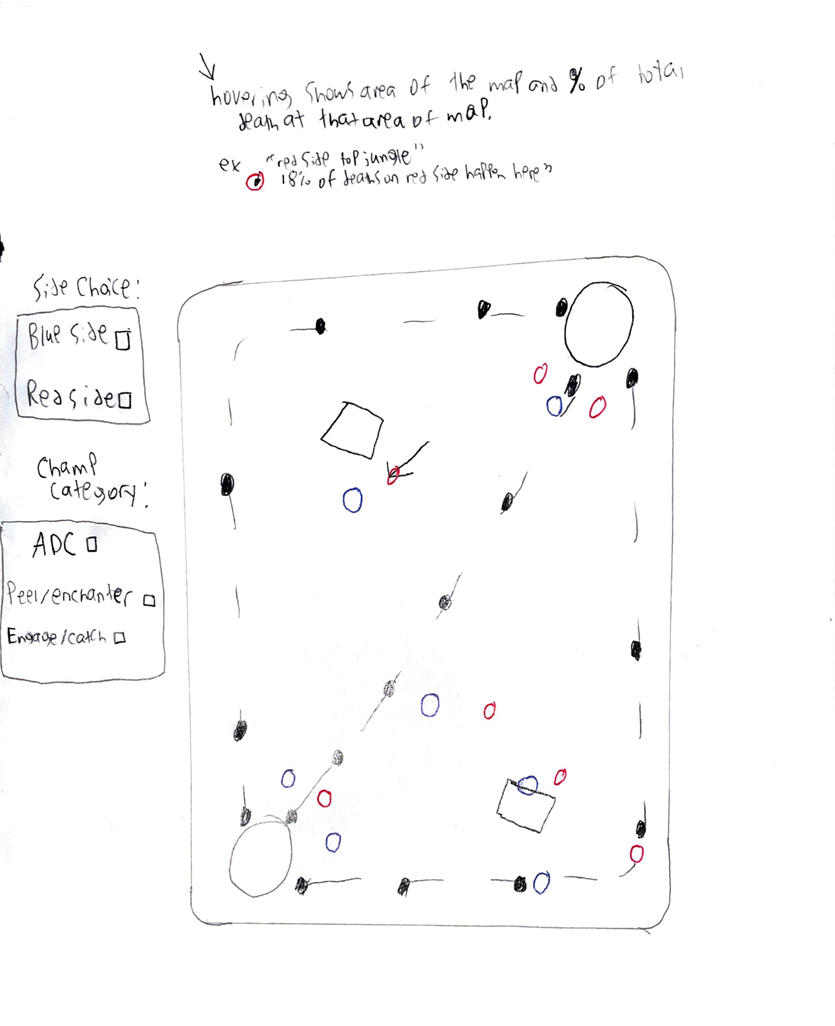 hovering shows area of the map and % of total
death at that area of map.
ex "red side top jungle"
18% of deaths on red side happen here"
Side Choice:
Blue side
Red side
Champ
Category:
ADC
Peel/enchanter
Engage/catch